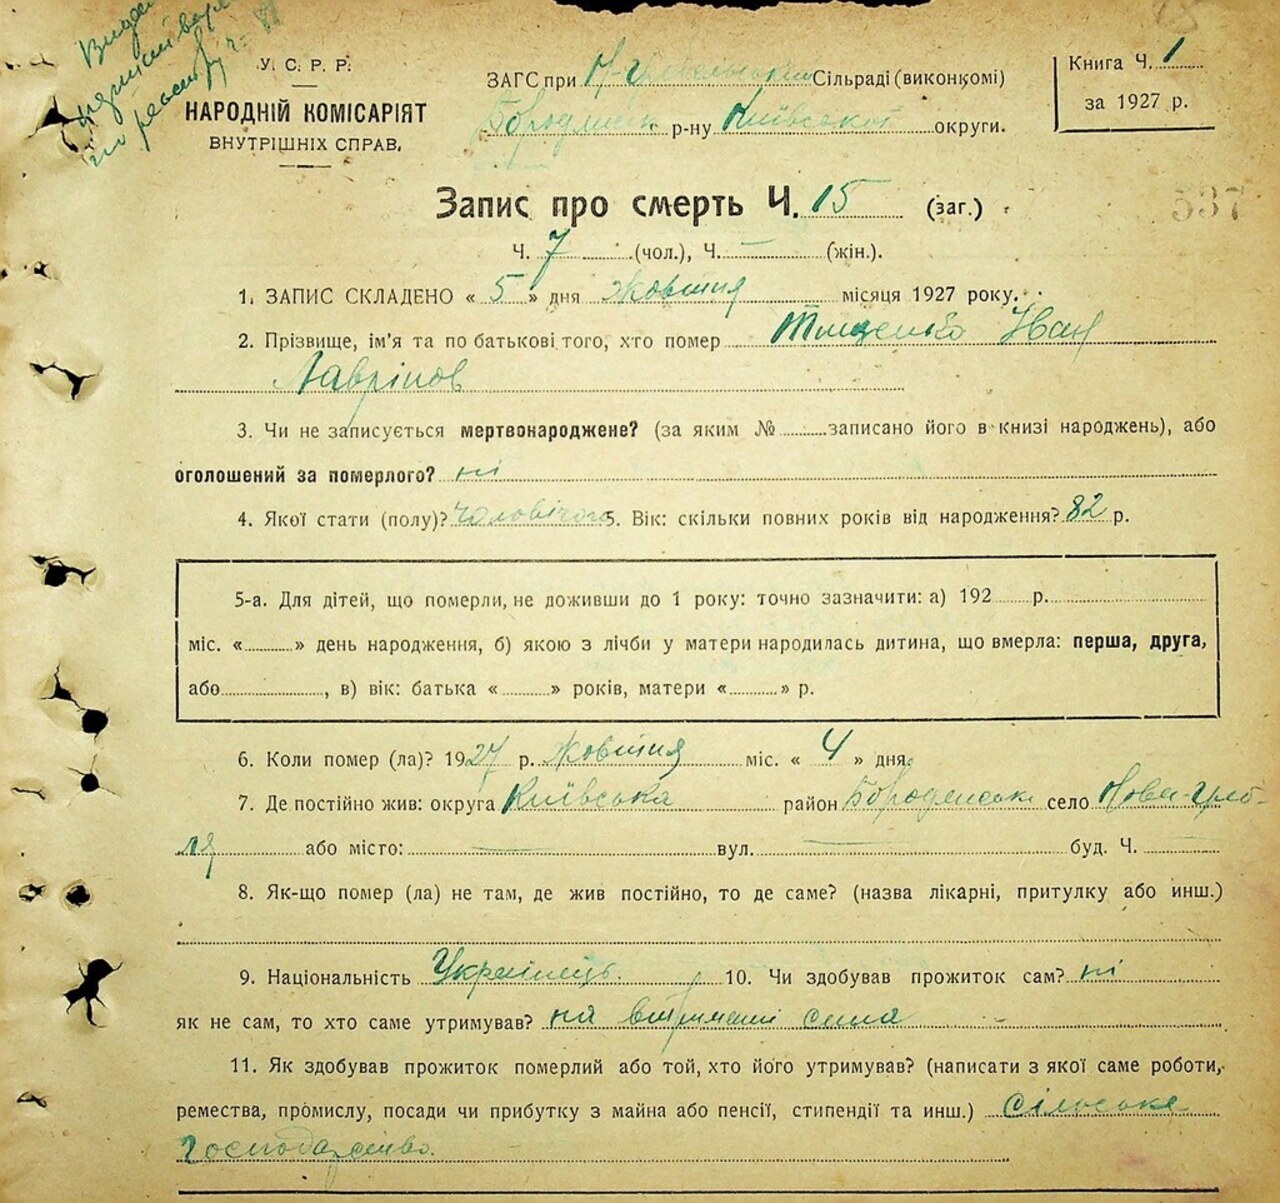 У. С. Р. Р.
НАРОДНІЙ КОМІСАРІЯТ
ВНУТРІШНІХ СПРАВ.
ЗАГС при Н-Гребельській Сільраді (виконкомі)
р-ну Київської округи.
Книга Ч. 1
за 1927 р.
Запис про смерть Ч. 15 (заг.)
Ч. 7 (чол.), Ч. — (жін.).
1. ЗАПИС СКЛАДЕНО « 5 » дня жовтня місяця 1927 року.
2. Прізвище, ім'я та по батькові того, хто помер Тищенко Іван
Лаврінов
3. Чи не записується мертвонароджене? (за яким № записано його в книзі народжень), або
оголошений за померлого? ні
4. Якої стати (полу)? чоловічого 5. Вік: скільки повних років від народження? 82 р.
5-а. Для дітей, що померли, не доживши до 1 року: точно зазначити: а) 192 р.
міс. « » день народження, б) якою з лічби у матери народилась дитина, що вмерла: перша, друга,
або , в) вік: батька « » років, матери « » р.
6. Коли помер (ла)? 1927 р. жовтня міс. « 4 » дня
7. Де постійно жив: округа Київська район Бородянськ село Нова-Греб-
ля або місто: — вул. — буд. Ч. —
8. Як-що помер (ла) не там, де жив постійно, то де саме? (назва лікарні, притулку або инш.)
9. Національність Українець. 10. Чи здобував прожиток сам? ні
як не сам, то хто саме утримував? на втриманні сина
11. Як здобував прожиток померлий або той, хто його утримував? (написати з якої саме роботи,
ремества, промислу, посади чи прибутку з майна або пенсії, стипендії та инш.) сільське
господарство.